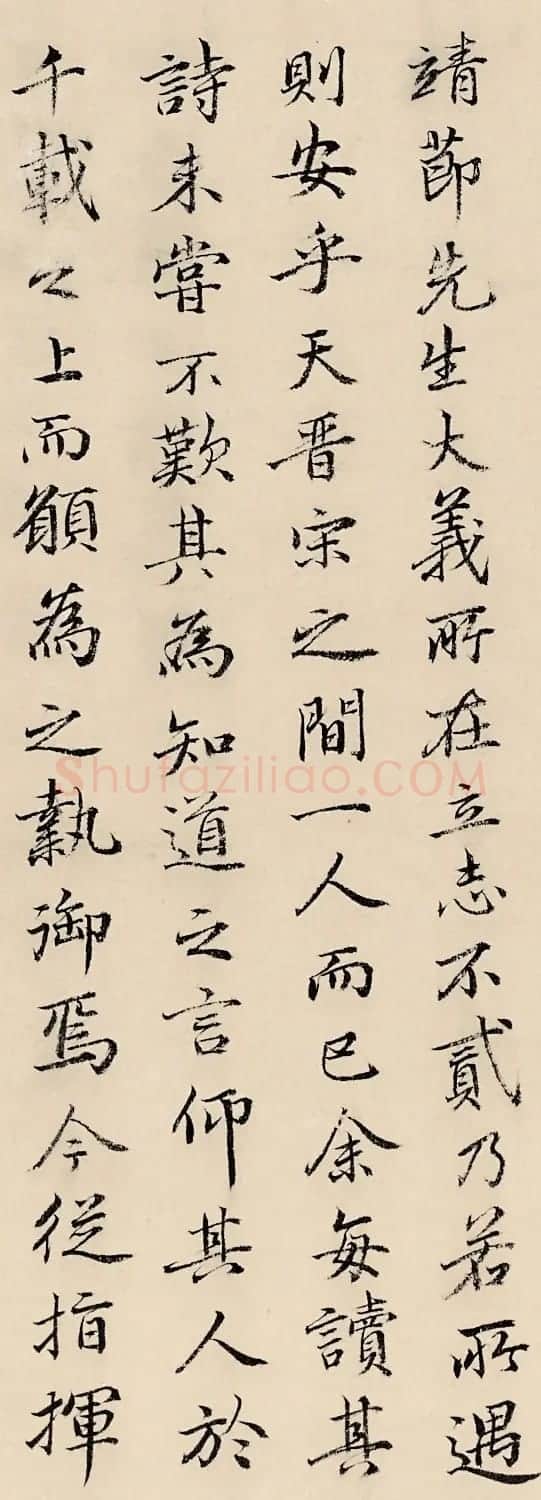 靖節先生大義所在立志不貳乃若所遇
則安乎天晋宋之間一人而已余每讀其
詩未嘗不歎其為知道之言仰其人於
千載之上而願為之執御焉今從指揮
Shufaziliao.COM